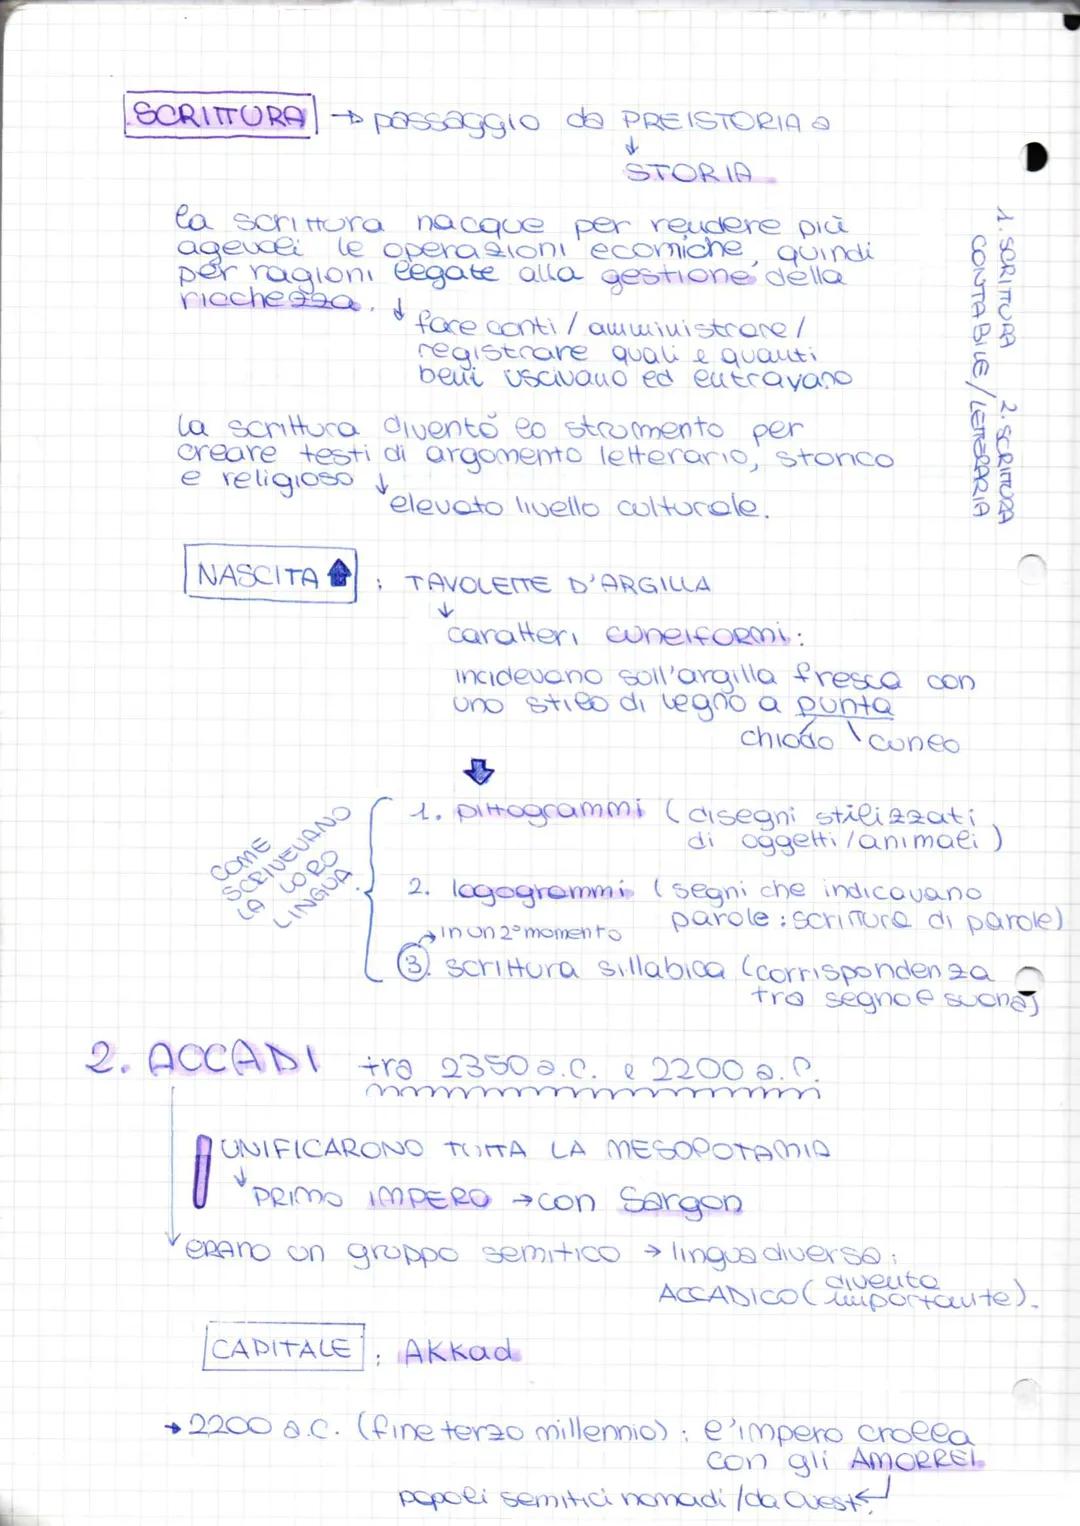 SCRITTURA → passaggio da PREISTORIA a
↓
STORIA
la scrittura nacque per rendere più
agevoli le operazioni ecomiche, quindi
per ragioni legate alla gestione della
ricchezza.
↓ fare conti / amministrare /
registrare quali e quanti
beni uscivano ed entravano
La scrittura diventò lo strumento per
creare testi di argomento letterario, storico
e religioso ↓
elevato livello culturale.
1. SCRITTURA 2. SCRITTURA
CONTABILE / LETTERARIA
NASCITA ⬆ : TAVOLETTE D'ARGILLA
↓
caratteri cuneiformi:
incidevano sull'argilla fresca con
uno stilo di legno a punta
chiodo \ cuneo
⬇
COME
SCRIVEVANO
LA LORO
LINGUA.
1. pittogrammi (disegni stilizzati
di oggetti/animali)
2. logogrammi (segni che indicavano
parole: scrittura di parole)
→ in un 2° momento
3. scrittura sillabica (corrispondenza
tra segno e suono)
2. ACCADI tra 2350 a.C. e 2200 a.C.
UNIFICARONO TUTTA LA MESOPOTAMIA
↓
PRIMO IMPERO → con Sargon
ERANO un gruppo semitico → lingua diversa:
ACCADICO (diventa
importante).
CAPITALE : AKKad
→ 2200 a.C. (fine terzo millennio): l'impero crolla
con gli AMORREI
popoli semitici nomadi / da Ovest